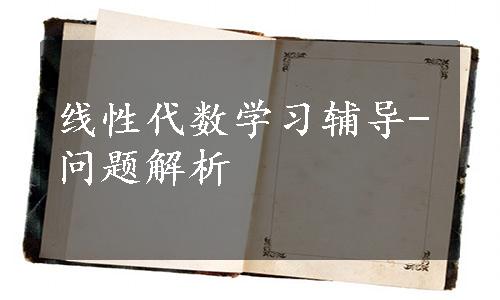 线性代数学习辅导-
问题解析